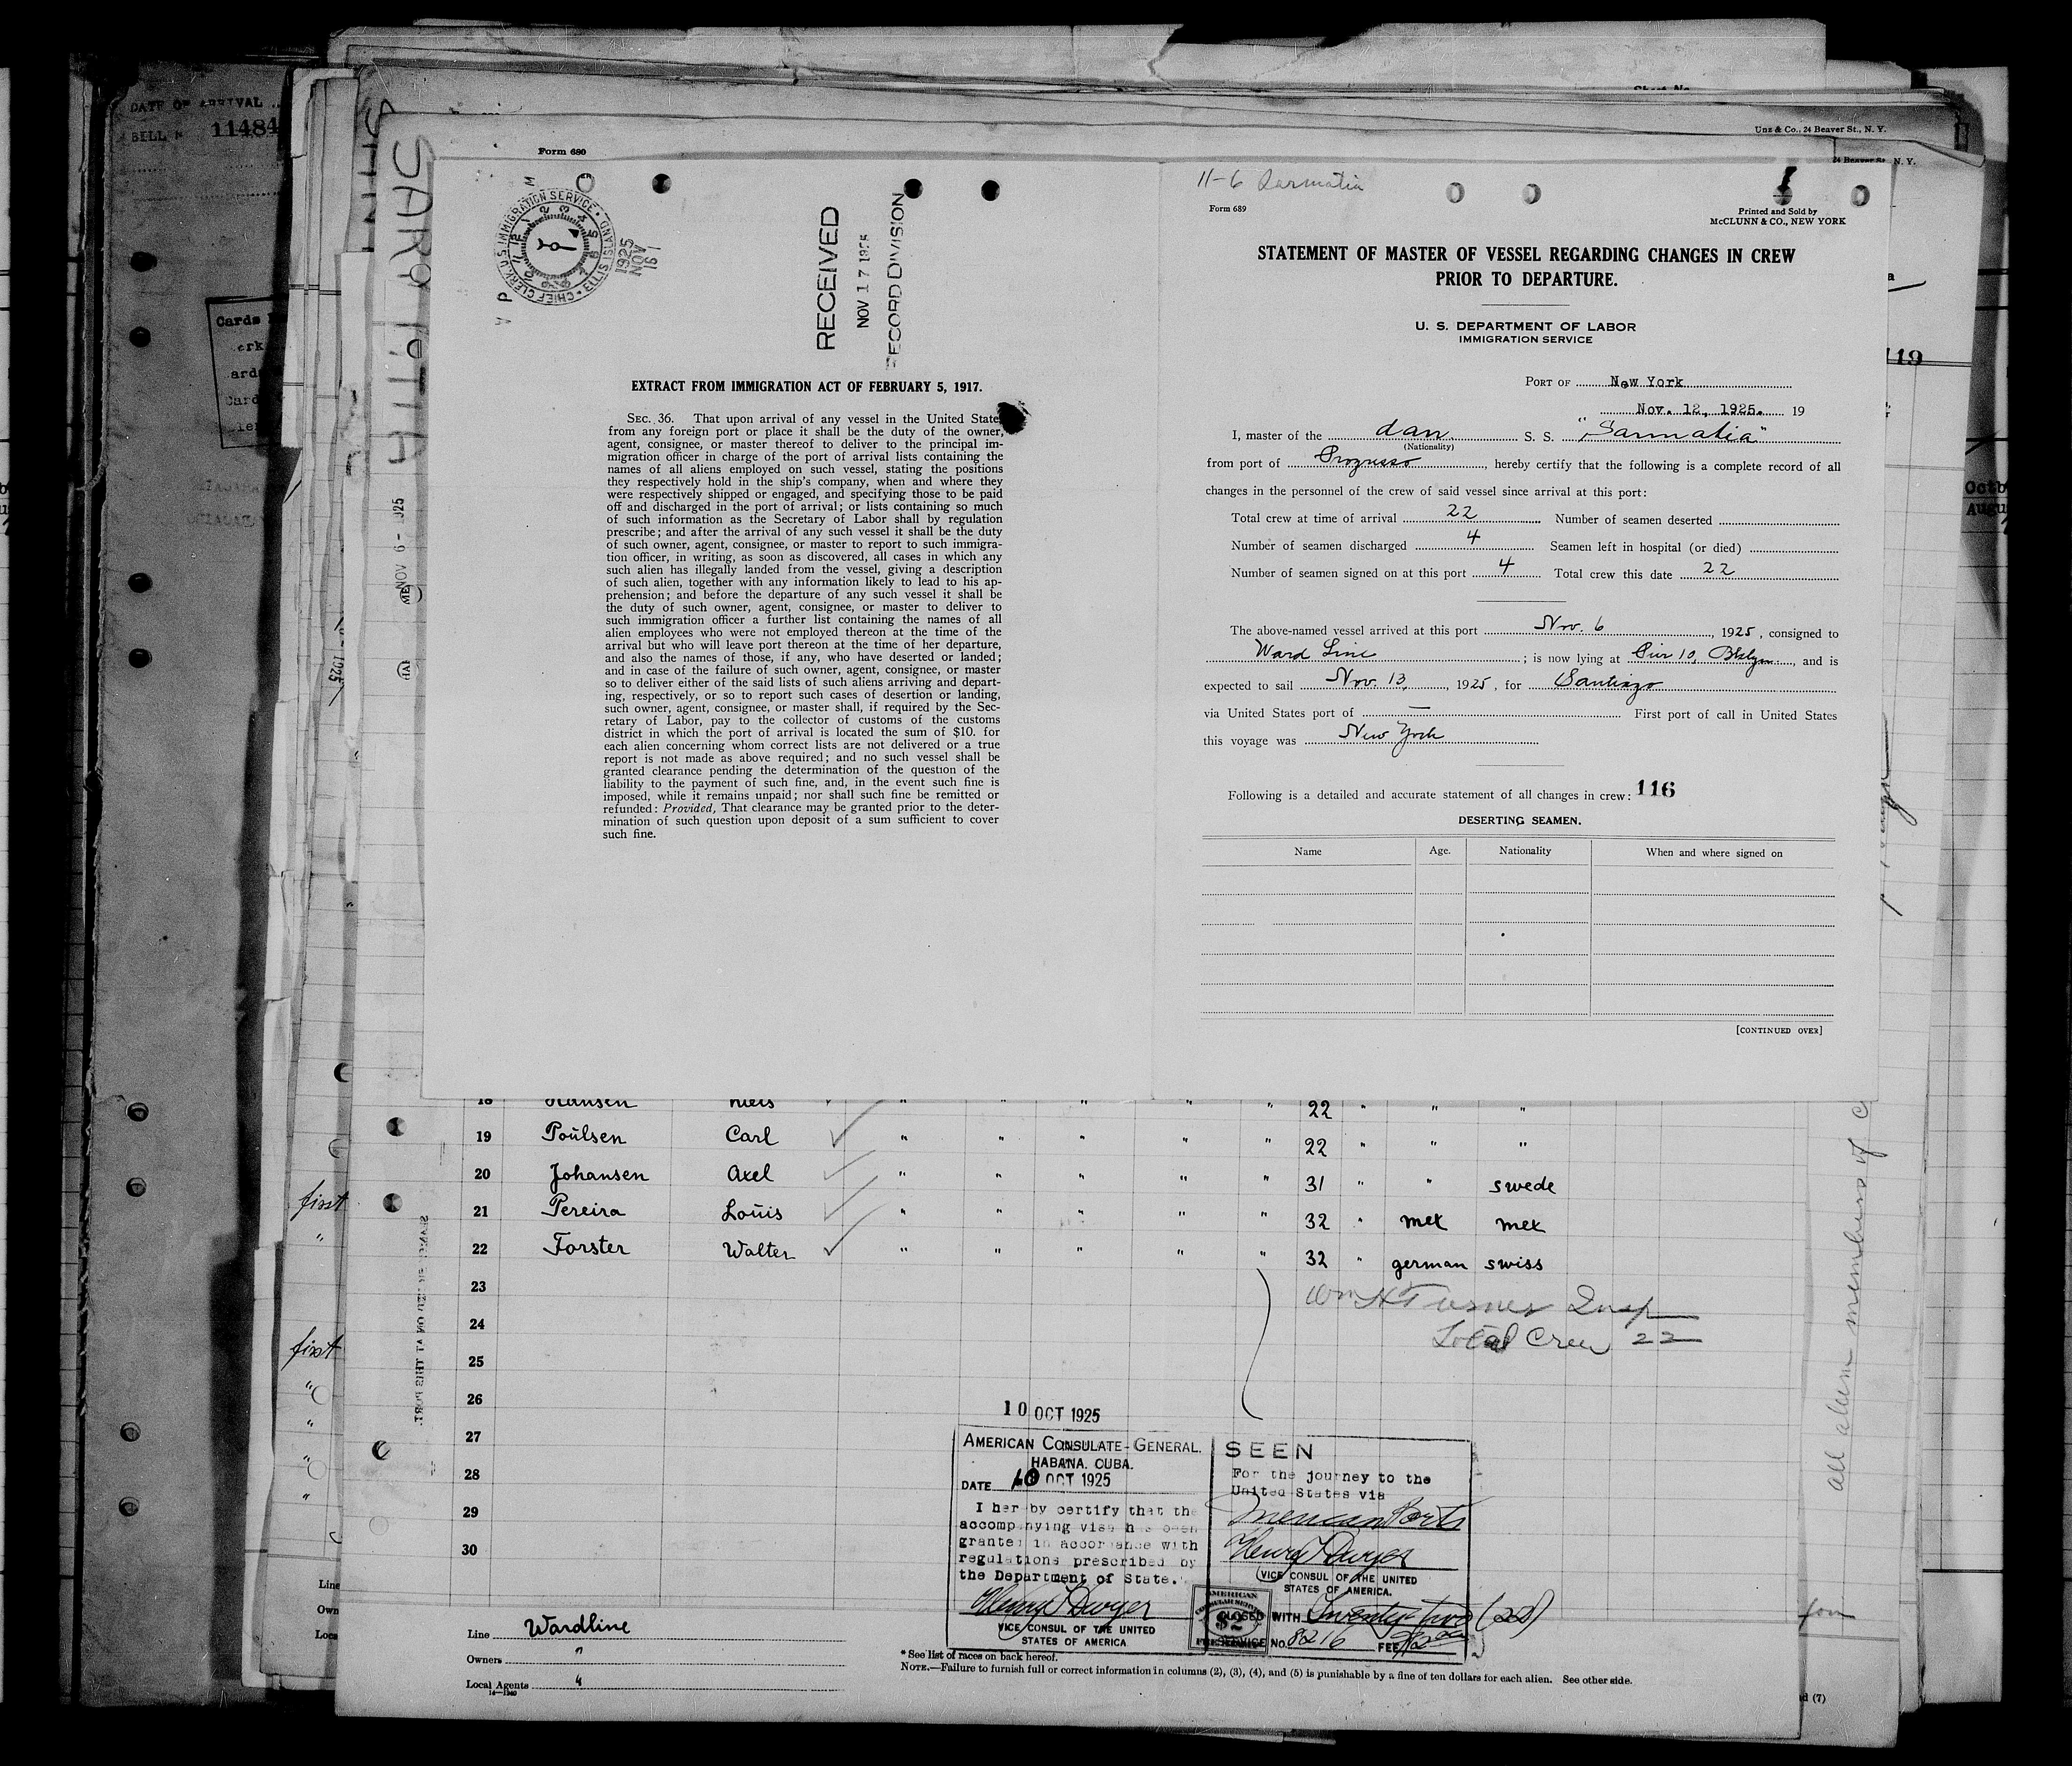 DATE OF ARRIVAL
BELL N 11484
Cards
Form 680
Unz & Co., 24 Beaver St., N. Y.
24 Beaver St., N. Y.
SARMATIA
NOV 6 - 1925
CHIEF CLERK, U.S. IMMIGRATION SERVICE · ELLIS ISLAND ·
1925
NOV
16 1
RECEIVED
NOV 17 1925
RECORD DIVISION
EXTRACT FROM IMMIGRATION ACT OF FEBRUARY 5, 1917.
SEC. 36. That upon arrival of any vessel in the United States
from any foreign port or place it shall be the duty of the owner,
agent, consignee, or master thereof to deliver to the principal im-
migration officer in charge of the port of arrival lists containing the
names of all aliens employed on such vessel, stating the positions
they respectively hold in the ship's company, when and where they
were respectively shipped or engaged, and specifying those to be paid
off and discharged in the port of arrival; or lists containing so much
of such information as the Secretary of Labor shall by regulation
prescribe; and after the arrival of any such vessel it shall be the duty
of such owner, agent, consignee, or master to report to such immigra-
tion officer, in writing, as soon as discovered, all cases in which any
such alien has illegally landed from the vessel, giving a description
of such alien, together with any information likely to lead to his ap-
prehension; and before the departure of any such vessel it shall be
the duty of such owner, agent, consignee, or master to deliver to
such immigration officer a further list containing the names of all
alien employees who were not employed thereon at the time of the
arrival but who will leave port thereon at the time of her departure,
and also the names of those, if any, who have deserted or landed;
and in case of the failure of such owner, agent, consignee, or master
so to deliver either of the said lists of such aliens arriving and depart-
ing, respectively, or so to report such cases of desertion or landing,
such owner, agent, consignee, or master shall, if required by the Sec-
retary of Labor, pay to the collector of customs of the customs
district in which the port of arrival is located the sum of $10. for
each alien concerning whom correct lists are not delivered or a true
report is not made as above required; and no such vessel shall be
granted clearance pending the determination of the question of the
liability to the payment of such fine, and, in the event such fine is
imposed, while it remains unpaid; nor shall such fine be remitted or
refunded: Provided, That clearance may be granted prior to the deter-
mination of such question upon deposit of a sum sufficient to cover
such fine.
11-6 Sarmatia
Form 689
Printed and Sold by
McCLUNN & CO., NEW YORK
STATEMENT OF MASTER OF VESSEL REGARDING CHANGES IN CREW
PRIOR TO DEPARTURE.
U. S. DEPARTMENT OF LABOR
IMMIGRATION SERVICE
PORT OF New York
Nov. 12, 1925. 19
I, master of the dan. S. S. "Sarmatia"
(Nationality)
from port of Progresso, hereby certify that the following is a complete record of all
changes in the personnel of the crew of said vessel since arrival at this port:
Total crew at time of arrival 22 Number of seamen deserted
Number of seamen discharged 4 Seamen left in hospital (or died)
Number of seamen signed on at this port 4 Total crew this date 22
The above-named vessel arrived at this port Nov. 6, 1925, consigned to
Ward Line; is now lying at Pier 10, Bklyn., and is
expected to sail Nov. 13, 1925, for Santiago
via United States port of — First port of call in United States
this voyage was New York
Following is a detailed and accurate statement of all changes in crew: 116
DESERTING SEAMEN.
Name Age. Nationality When and where signed on
[CONTINUED OVER]
119
18 Hansen Niels " " " " " 22 " " "
19 Poulsen Carl " " " " " 22 " " "
20 Johansen Axel " " " " " 31 " " swede
21 Pereira Louis " " " " " 32 " mex mex
22 Forster Walter " " " " " 32 " german swiss
23
24
25
26
27
28
29
30
Wm H Turner Insp
Total Crew 22
first
"
first
"
"
"
"
all alien members of
10 OCT 1925
AMERICAN CONSULATE-GENERAL.
HABANA. CUBA.
DATE 10 OCT 1925
I hereby certify that the
accompanying visa has been
granted in accordance with
regulations prescribed by
the Department of State.
Henry T Dwyer
VICE CONSUL OF THE UNITED
STATES OF AMERICA
SEEN
For the journey to the
United States via
Mexican Ports
Henry T Dwyer
VICE CONSUL OF THE UNITED
STATES OF AMERICA.
CLOSED WITH Twenty-two (22)
SERVICE No. 8216 FEE
AMERICAN
CONSULAR SERVICE
$2
Line Wardline
Owners "
Local Agents "
14—1240
* See list of races on back hereof.
NOTE.—Failure to furnish full or correct information in columns (2), (3), (4), and (5) is punishable by a fine of ten dollars for each alien. See other side.